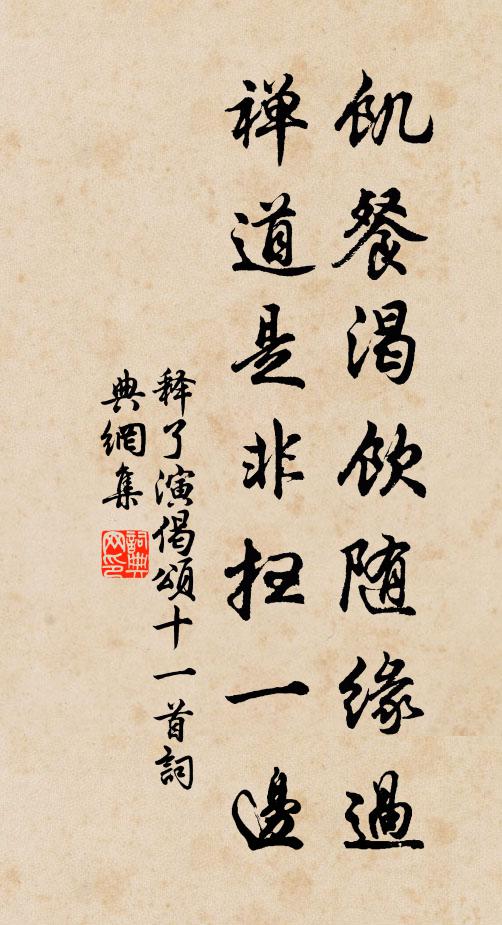 飢餐渴飲随緣過
禅道是非抂一邊
释了演偈頌十一首詞
典網集
詞典
网印